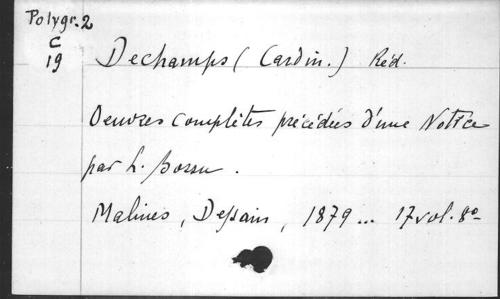 Polygr. 2
C
19
Dechamps (Cardin.) Réd.
Oeuvres complètes précédées d'une Notice
par L. Bossu.
Malines, Dessain, 1879 ... 17 vol. 8º